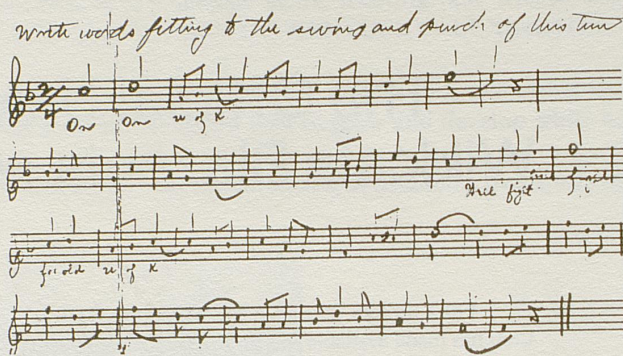 Write words fitting to the swing and punch of this tune
On On u of k
Hail fight
for old u of k